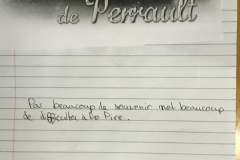 de Perrault
Pas beaucoup de souvenir mot beaucoup
de difficulter a lire.